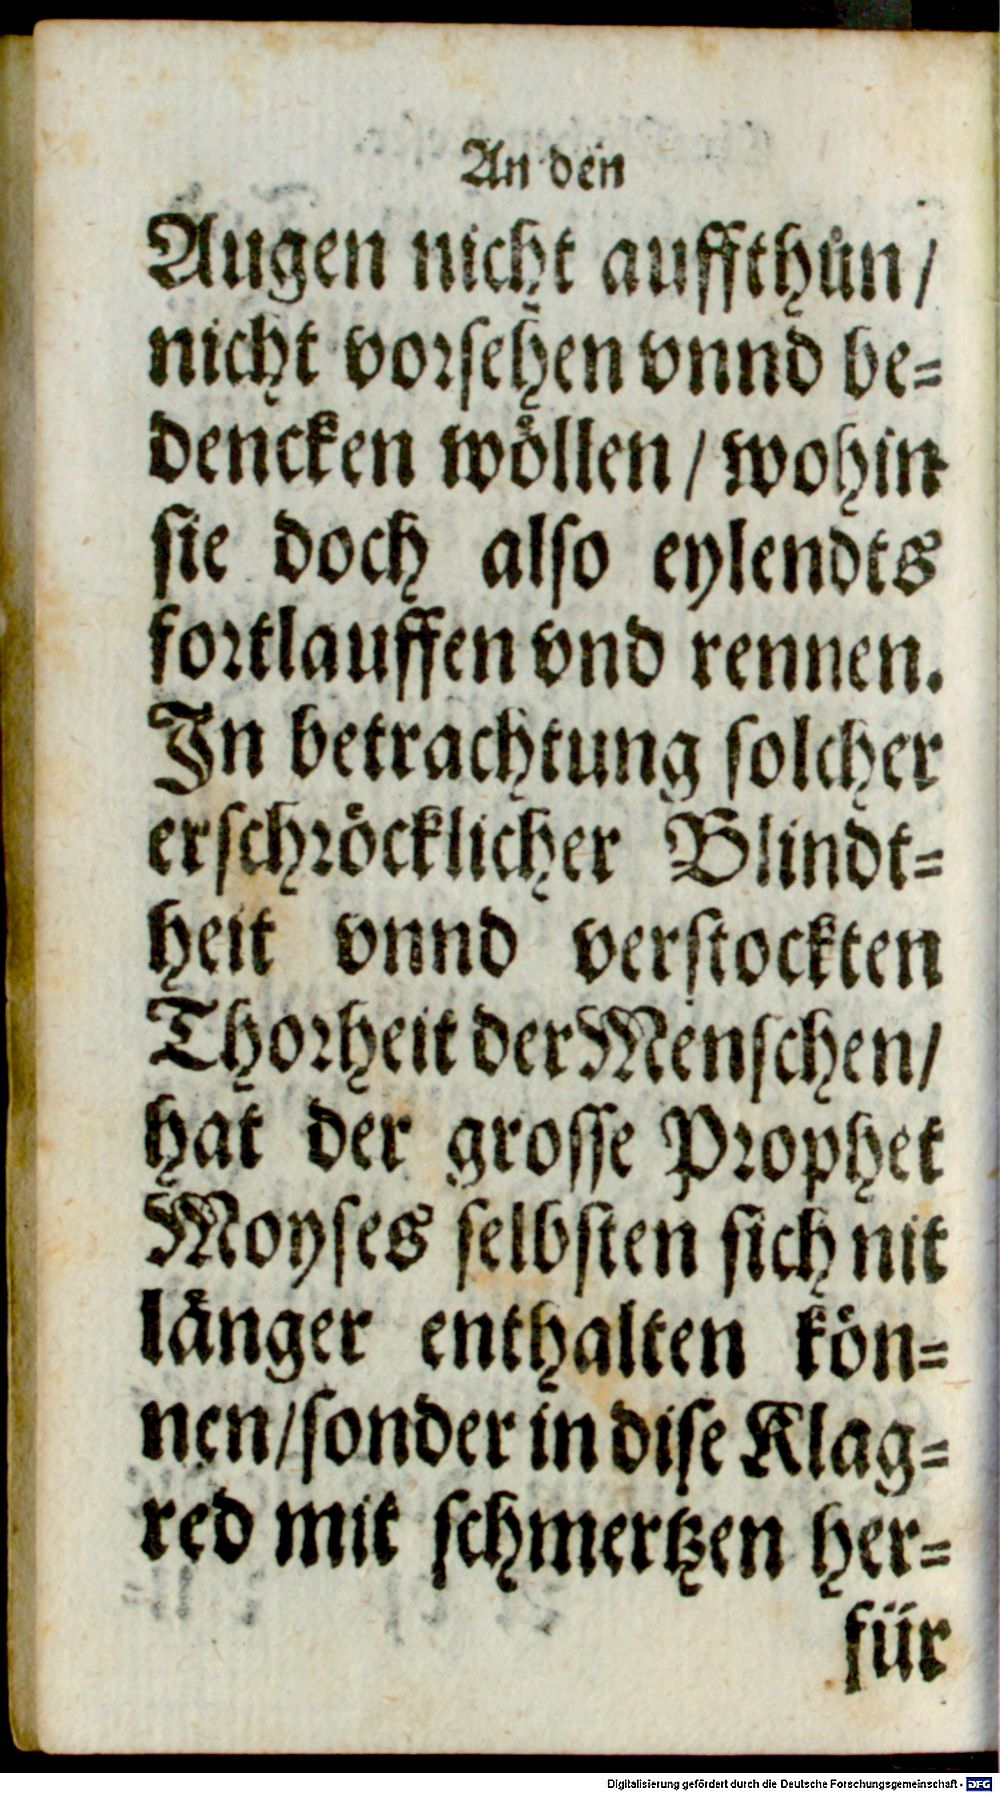 An den
Augen nicht auffthůn/
nicht vorsehen vnnd be=
dencken wöllen/ wohin
sie doch also eylendts
fortlauffen vnd rennen.
In betrachtung solcher
erschröcklicher Blindt=
heit vnnd verstockten
Thorheit der Menschen/
hat der grosse Prophet
Moyses selbsten sich nit
länger enthalten kön=
nen/sonder in dise Klag=
red mit schmertzen her=
für
Digitalisierung gefördert durch die Deutsche Forschungsgemeinschaft - DFG